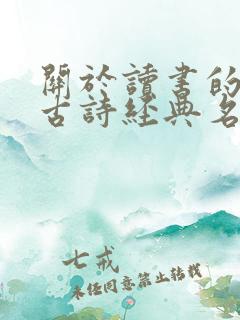 關於讀書的
古詩經典名
七戒
未經同意禁止轉載